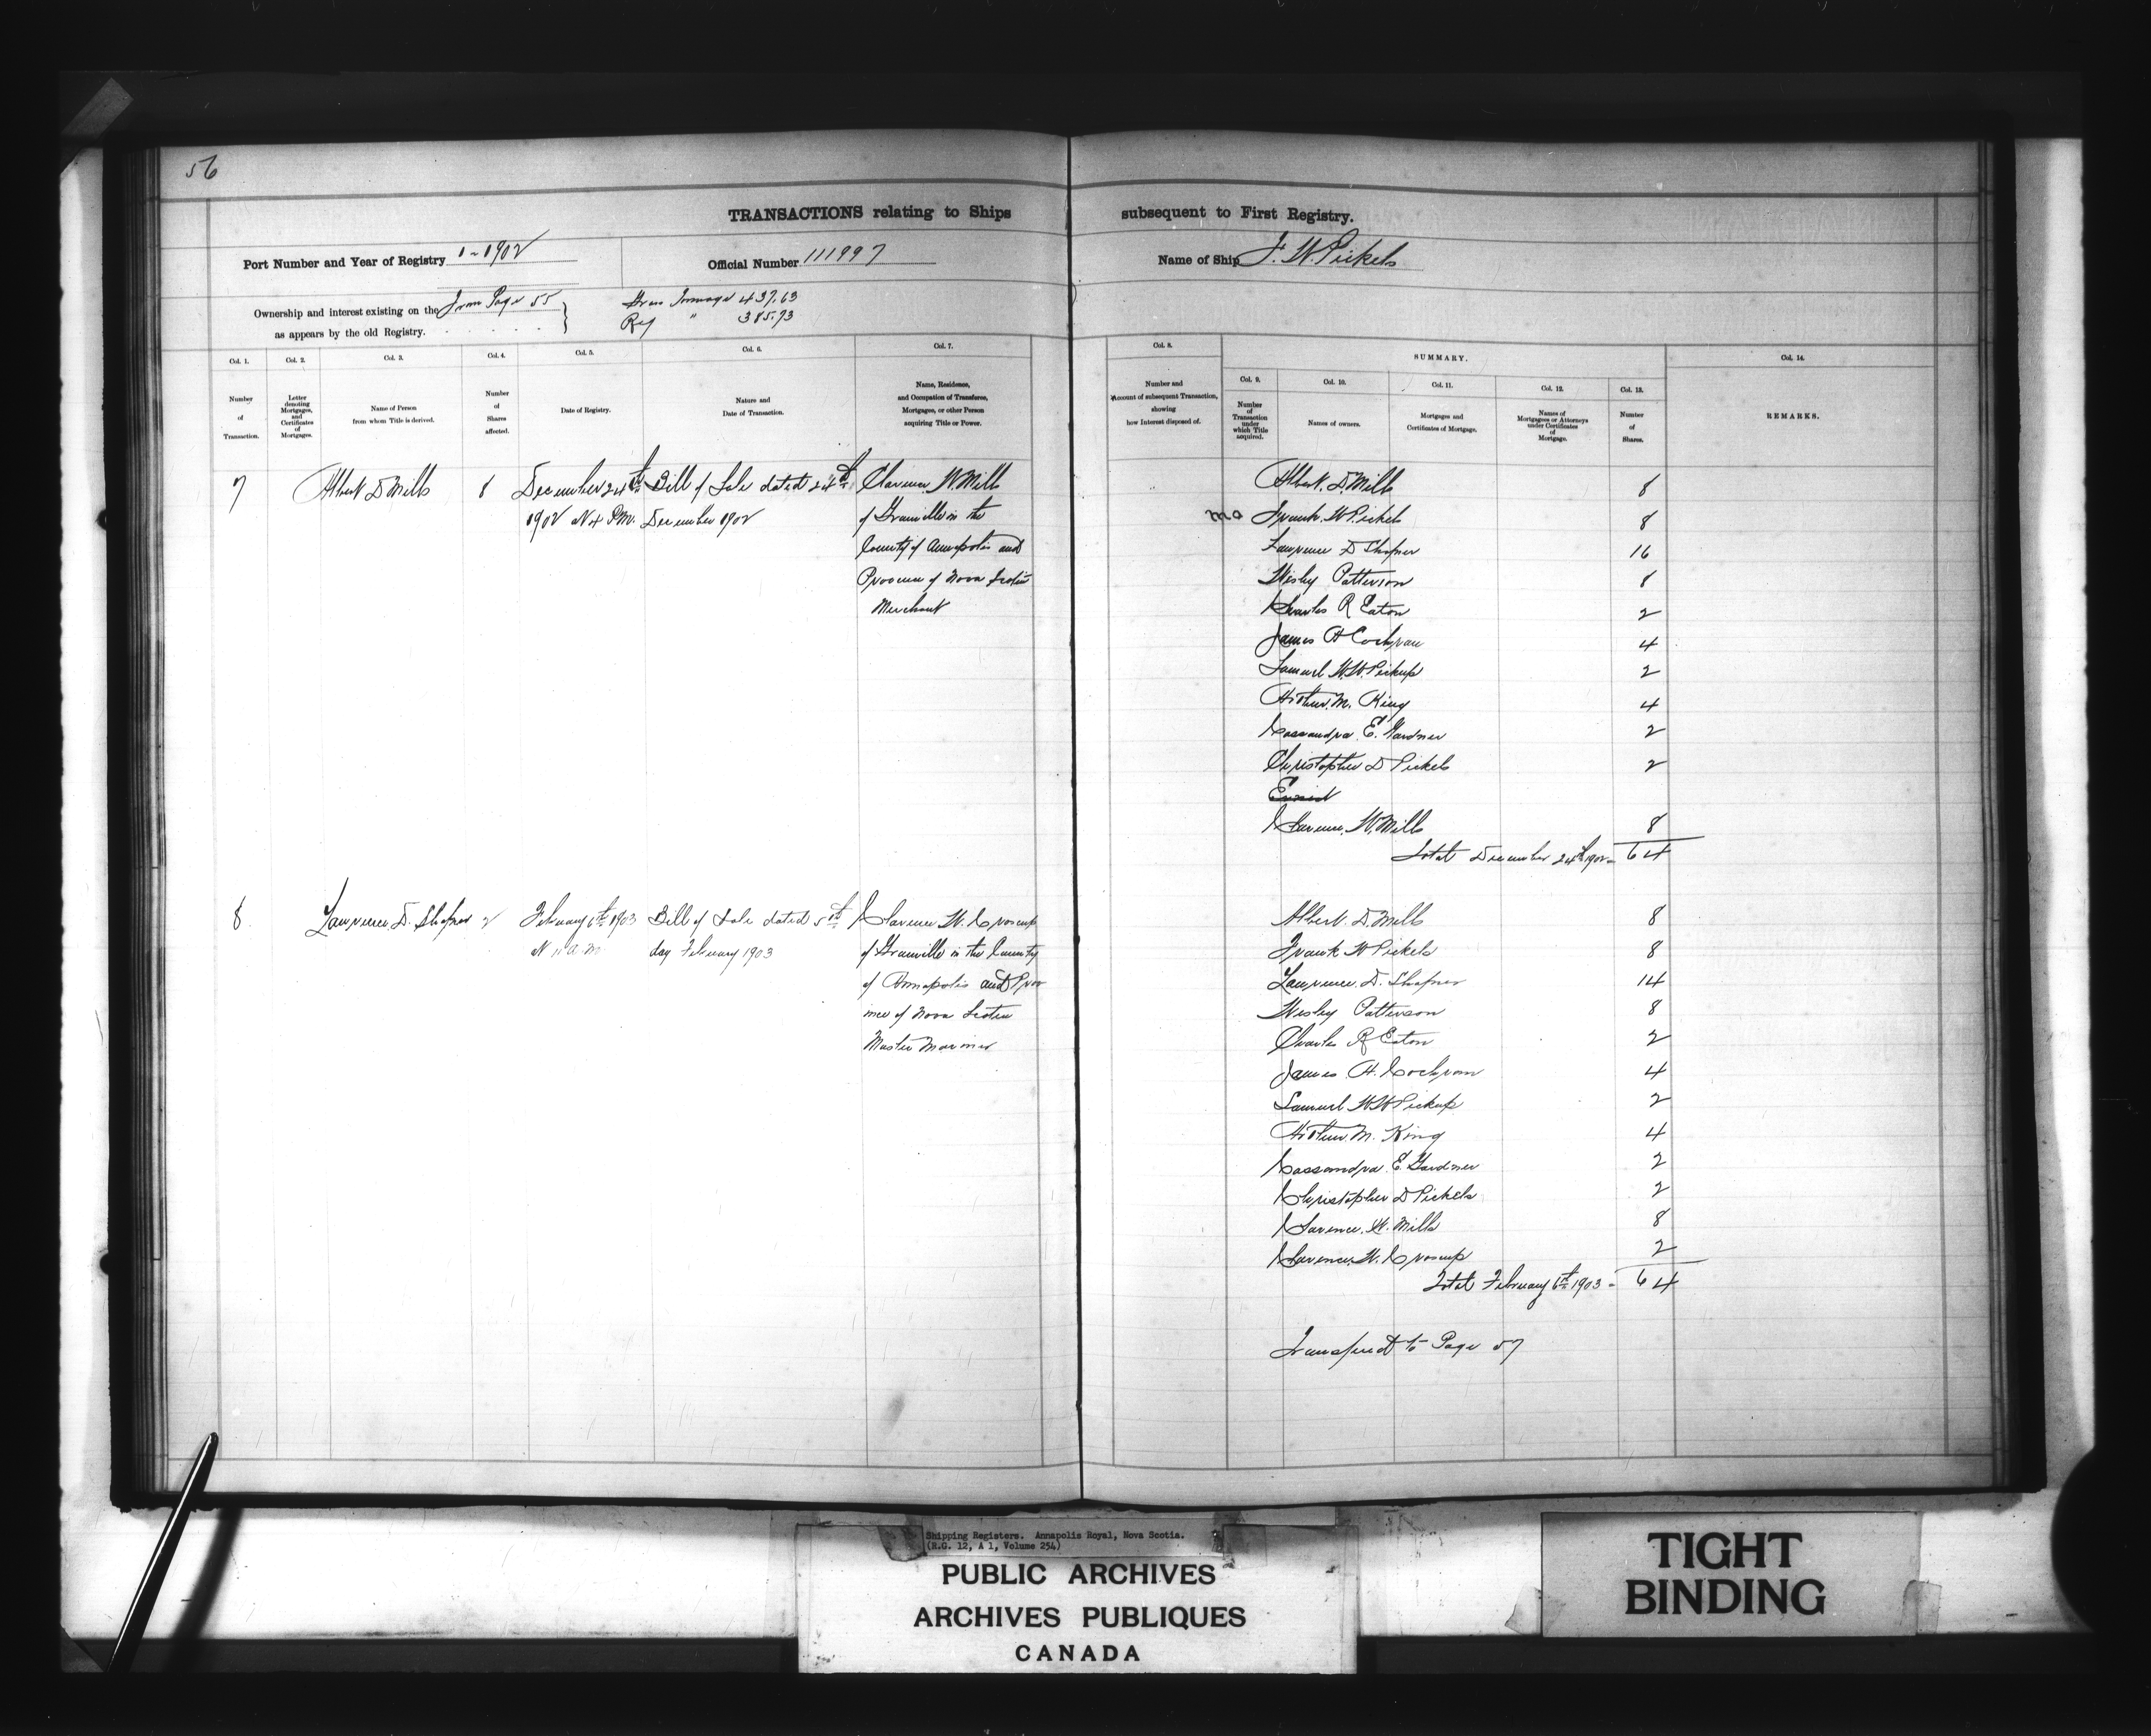 56
TRANSACTIONS relating to Ships subsequent to First Registry.
Port Number and Year of Registry 1-1902
Official Number 111997
Name of Ship F. W. Pickels
Ownership and interest existing on the From Page 55
as appears by the old Registry.
Gross Tonnage 437.63
Reg " 385.93
Col. 1.
Col. 2.
Col. 3.
Col. 4.
Col. 5.
Col. 6.
Col. 7.
Col. 8.
SUMMARY.
Col. 9.
Col. 10.
Col. 11.
Col. 12.
Col. 13.
Col. 14.
Number of Transaction.
Letter denoting Mortgages, and Certificates of Mortgages.
Name of Person from whom Title is derived.
Number of Shares affected.
Date of Registry.
Nature and Date of Transaction.
Name, Residence, and Occupation of Transferee, Mortgagee, or other Person acquiring Title or Power.
Number and Account of subsequent Transaction, showing how Interest disposed of.
Number of Transaction under which Title acquired.
Names of owners.
Mortgages and Certificates of Mortgage.
Names of Mortgagees or Attorneys under Certificates of Mortgage.
Number of Shares.
REMARKS.
7 Albert D Mills 8 December 24th Bill of Sale dated 24th Clarence W. Mills
1902 at 4 P.M. December 1902 of Granville in the
County of Annapolis and
Province of Nova Scotia
Merchant
Albert. D. Mills 8
mo Frank. W Pickels 8
Lawrence D Shafner 16
Wesley Patterson 8
Charles R Eaton 2
James H Cochran 4
Samuel W. W. Pickup 2
Arthur. M. King 4
Cassandra. E. Gardner 2
Christopher D Pickels 2
Clarence. W. Mills 8
Total December 24th 1902 - 64
8 Lawrence. D. Shafner 2 February 6th 1903 Bill of Sale dated 5th Clarence W. Croscup
at 11 a.m. day February 1903 of Granville in the County
of Annapolis and Prov
ince of Nova Scotia
Master Mariner
Albert. D. Mills 8
Frank W Pickels 8
Lawrence. D. Shafner 14
Wesley Patterson 8
Charles R Eaton 2
James H. Cochran 4
Samuel W W Pickup 2
Arthur. M. King 4
Cassandra. E. Gardner 2
Christopher D Pickels 2
Clarence. W. Mills 8
Clarence. W. Croscup 2
Total February 6th 1903 - 64
Transferred to Page 57
Shipping Registers. Annapolis Royal, Nova Scotia.
(R.G. 12, A 1, Volume 254)
PUBLIC ARCHIVES
ARCHIVES PUBLIQUES
CANADA
TIGHT
BINDING